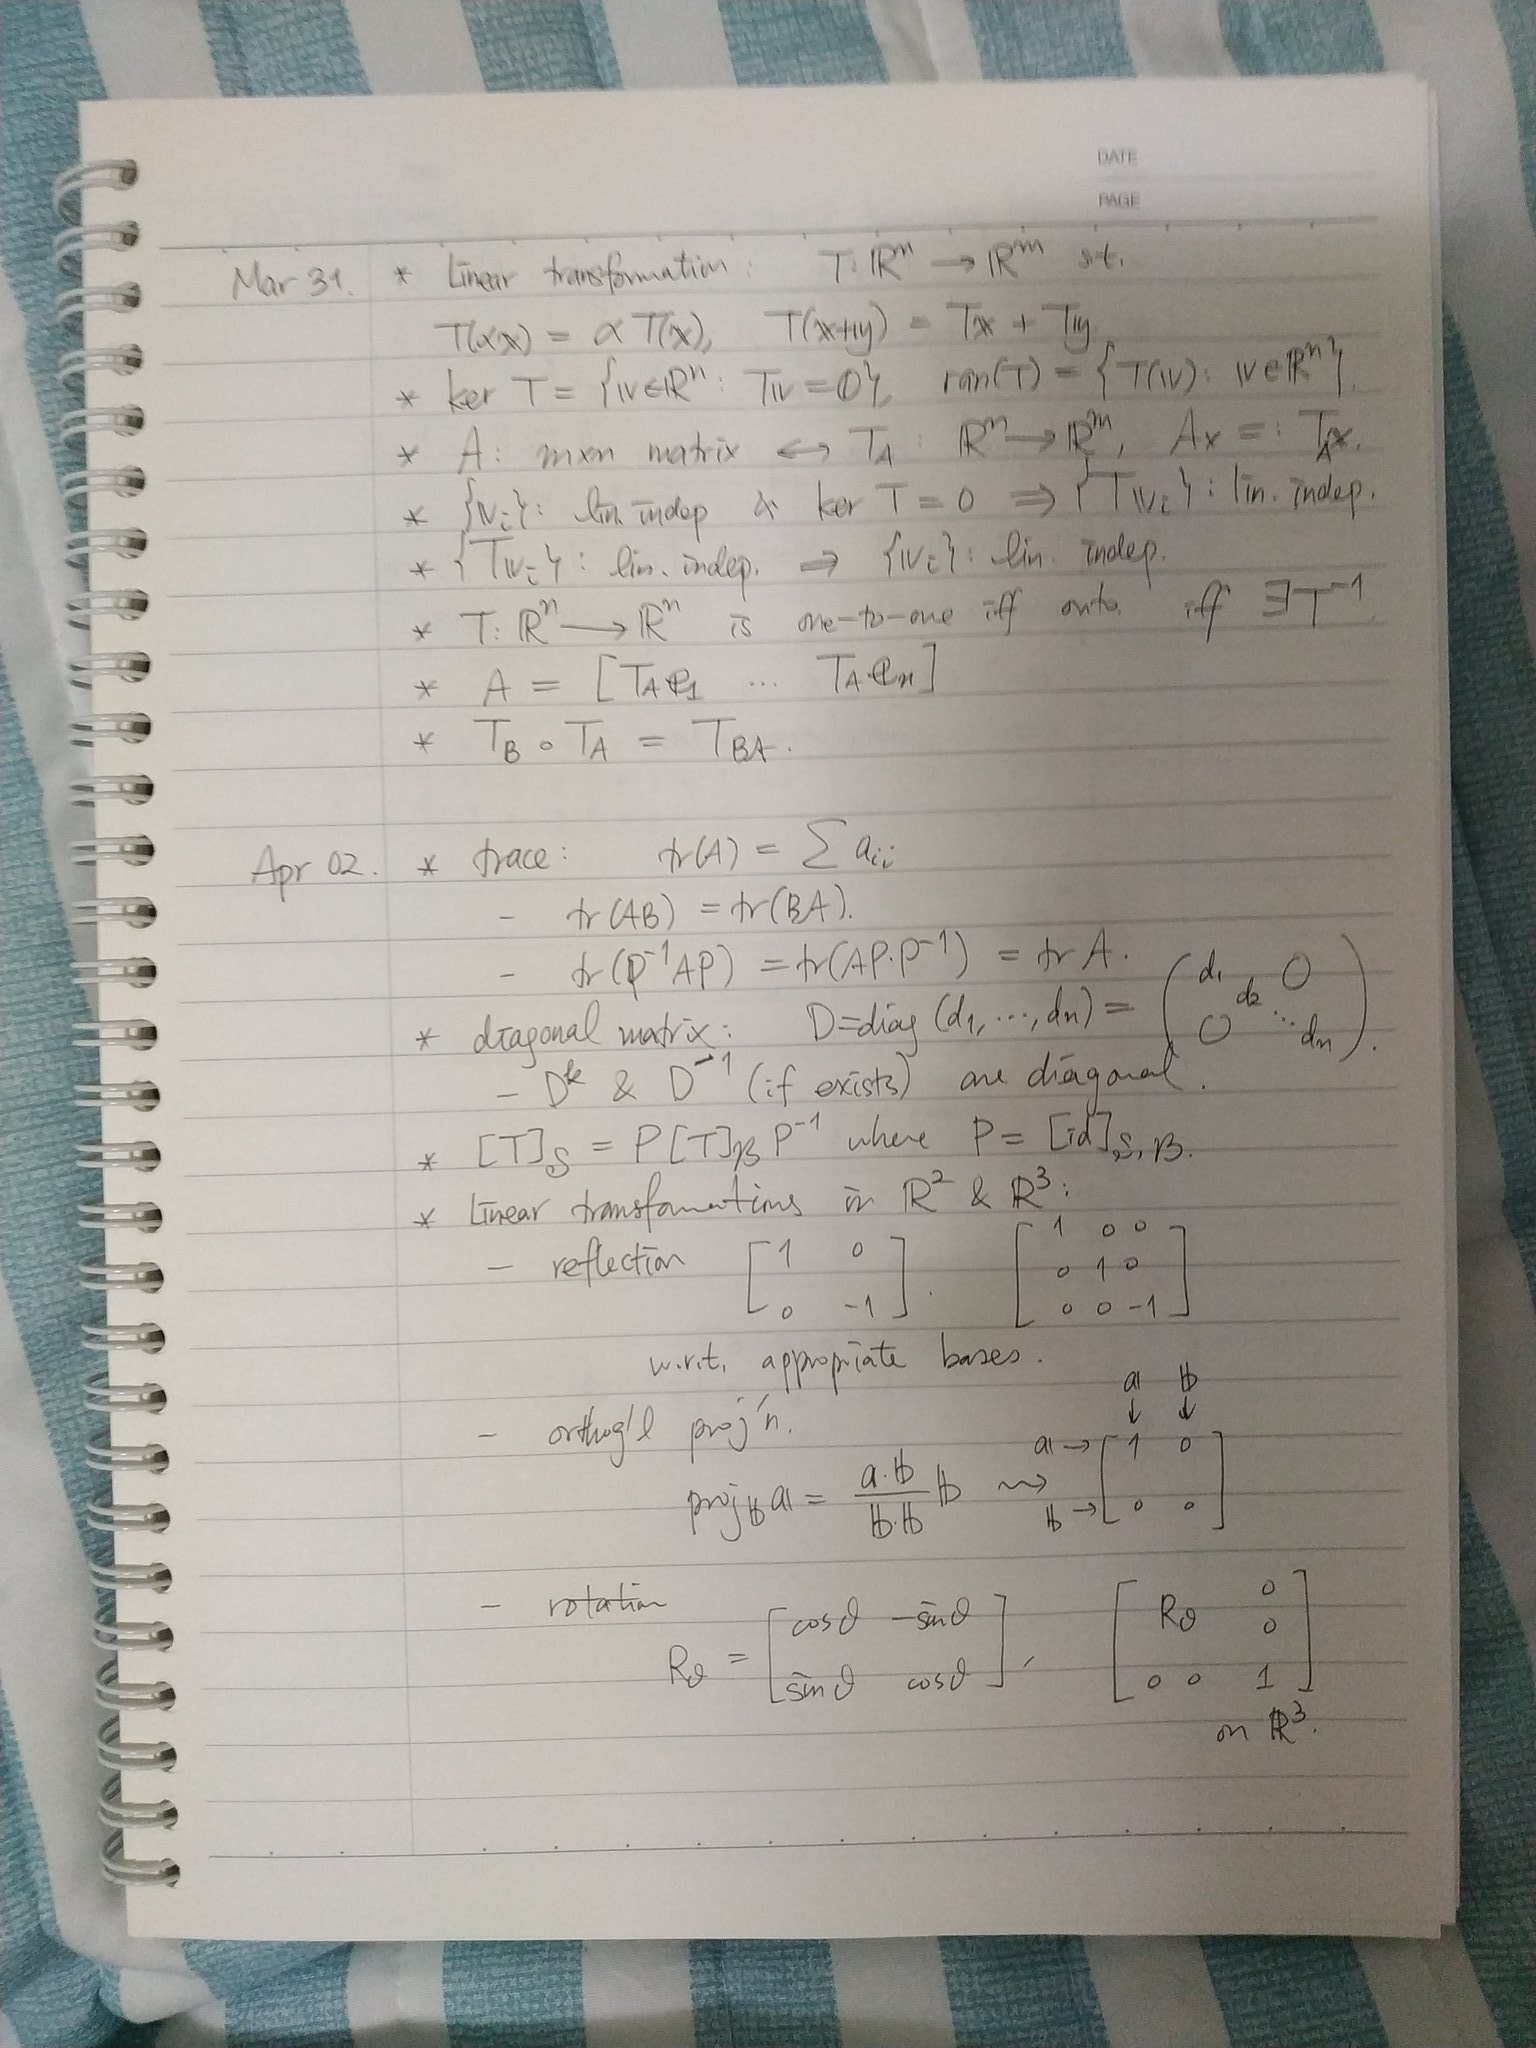 DATE
PAGE
Mar 31. * Linear transformation: T: ℝⁿ → ℝᵐ s.t.
T(αx) = αT(x), T(x+y) = Tx + Ty.
* ker T = {v∈ℝⁿ : Tv = 0}, ran(T) = {T(v) : v∈ℝⁿ}.
* A: m×n matrix ↔ T_A : ℝⁿ → ℝᵐ, Ax =: T_A x.
* {vᵢ}: lin. indep & ker T = 0 ⇒ {Tvᵢ}: lin. indep.
* {Tvᵢ}: lin. indep. ⇒ {vᵢ}: lin. indep.
* T: ℝⁿ → ℝⁿ is one-to-one iff onto. iff ∃T⁻¹
* A = [T_A e₁ ... T_A eₙ]
* T_B ∘ T_A = T_BA.
Apr 02. * trace: tr(A) = Σ aᵢᵢ
- tr(AB) = tr(BA).
- tr(P⁻¹AP) = tr(AP·P⁻¹) = tr A.
* diagonal matrix: D=diag(d₁, ..., dₙ) = (d₁ d₂ ... dₙ O O).
- Dᵏ & D⁻¹ (if exists) are diagonal.
* [T]_S = P[T]_B P⁻¹ where P = [id]_S,B.
* Linear transformations in ℝ² & ℝ³:
- reflection [1 0 0 -1]. [1 0 0 0 1 0 0 0 -1]
w.r.t. appropriate bases.
- orthog'l proj'n.
a b
↓ ↓
proj_b a = a·b / b·b b ⇝ a→ b→ [1 0 0 0]
- rotation
R_θ = [cosθ -sinθ sinθ cosθ], [R_θ 0 0 0 0 1]
on ℝ³.